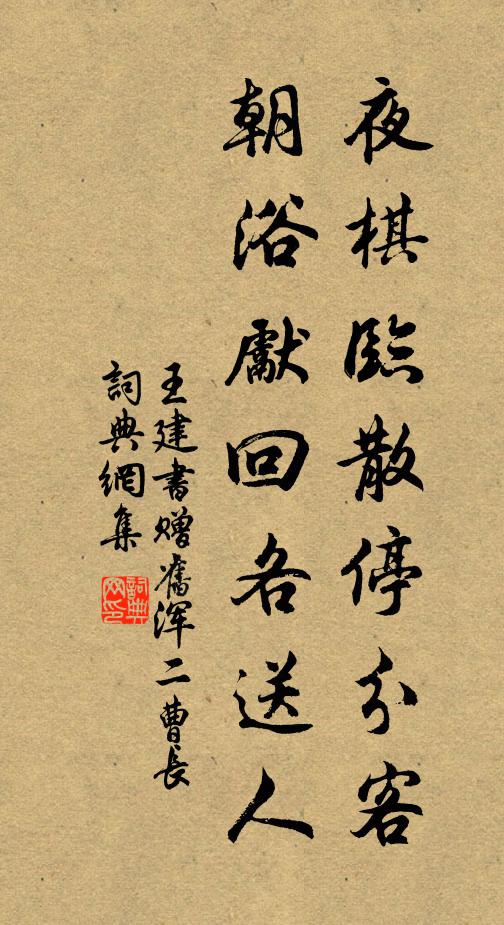 夜棋臨散停分客
朝浴獻回各送人
王建書赠舊浑二曹長
詞典網集
詞典網印